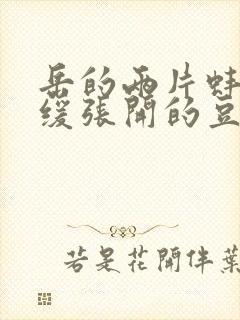 岳的两片蚌
缓张開的豆
若是花開伴葉